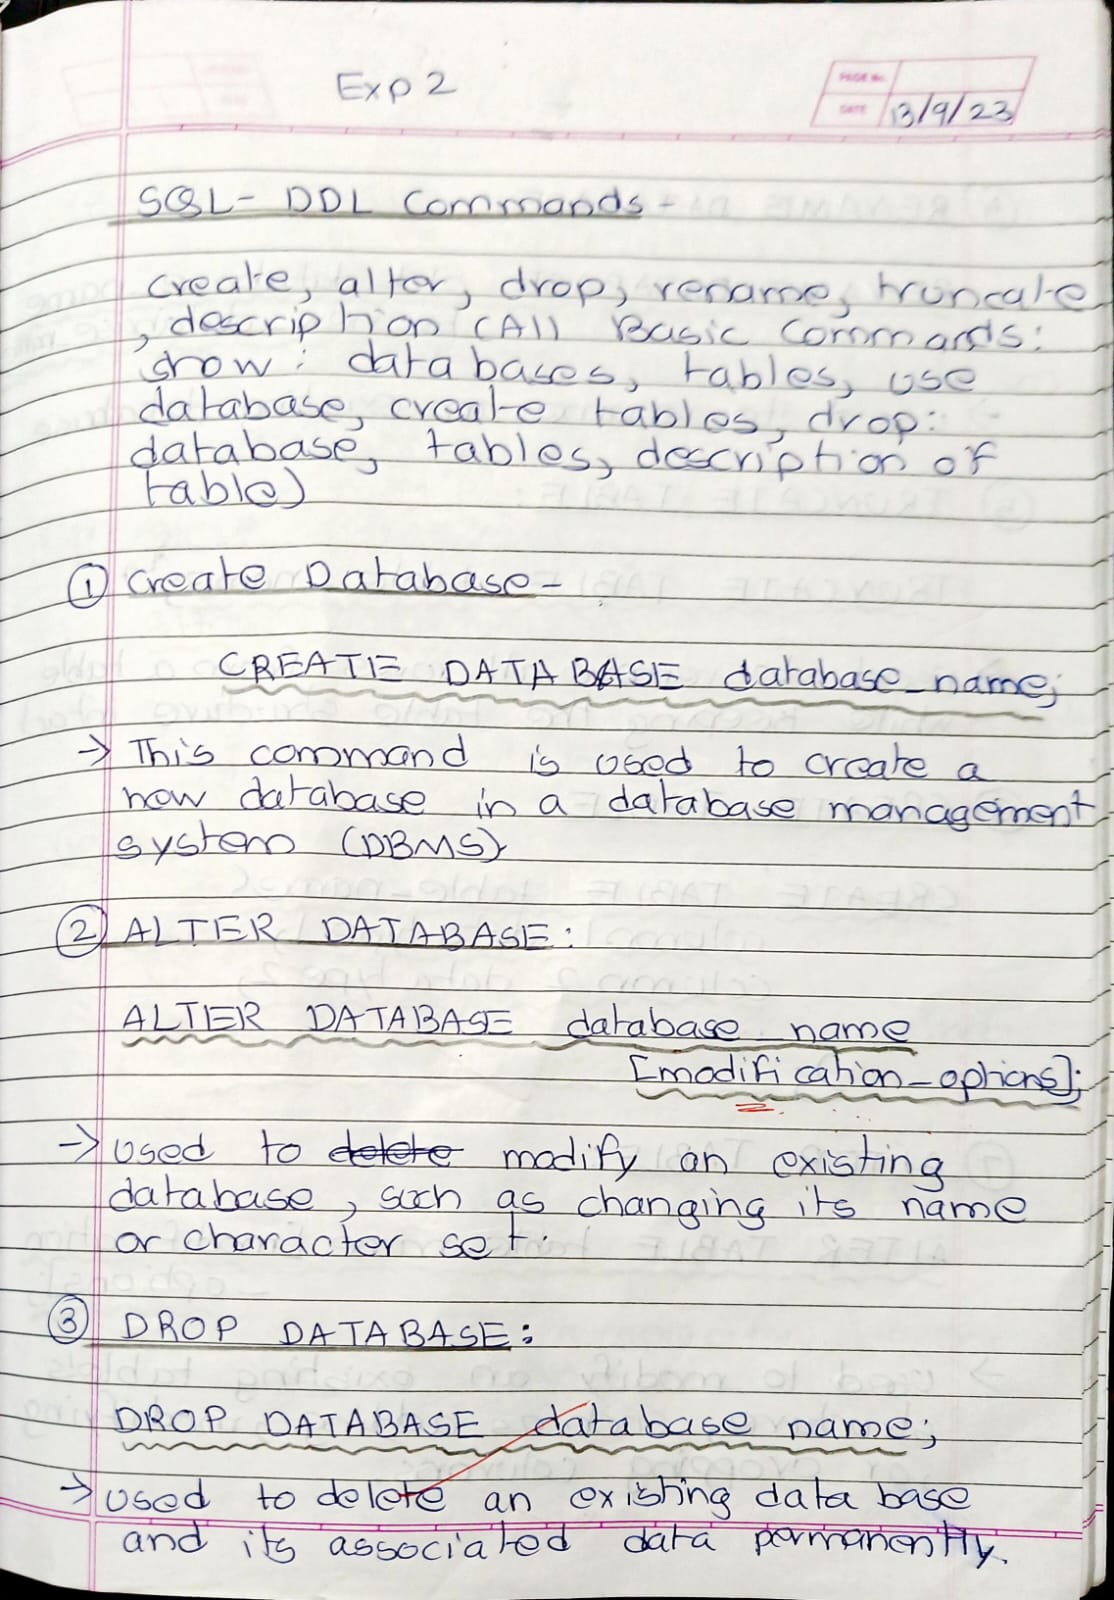 Exp 2
PAGE No.
DATE 13/9/23
SQL- DDL Commands-
create, alter, drop, rename, truncate
, description (All Basic Commands:
show: databases, tables, use
database, create tables, drop:
database, tables, description of
table)
① Create Database-
CREATE DATABASE database_name;
→ This command is used to create a
new database in a database management
system (DBMS)
② ALTER DATABASE:
ALTER DATABASE database name
[modification_options];
→ Used to delete modify an existing
database, such as changing its name
or character set.
③ DROP DATABASE:
DROP DATABASE database name;
→ Used to delete an existing data base
and its associated data permanently.